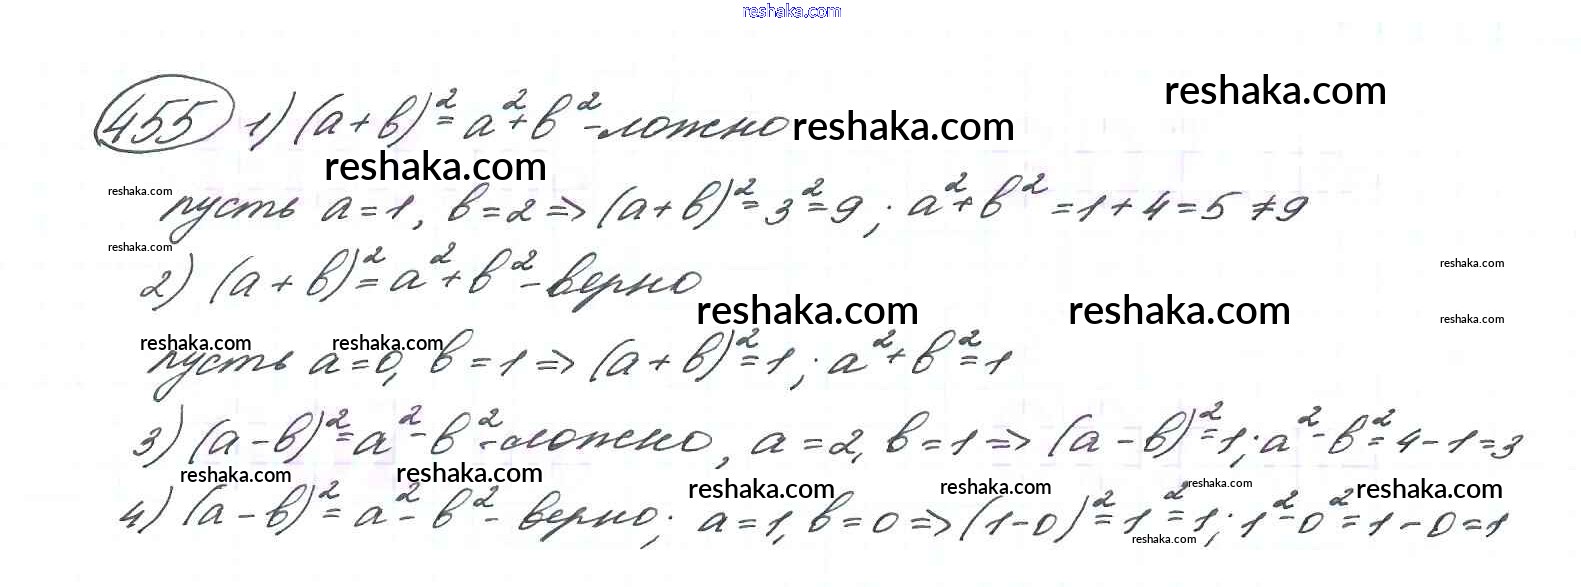 reshaka.com
reshaka.com
455 1) (a+b)²=a²+b² - ложно reshaka.com
reshaka.com
reshaka.com
пусть a=1, b=2 => (a+b)²=3²=9; a²+b²=1+4=5≠9
reshaka.com
2) (a+b)²=a²+b² - верно
reshaka.com
reshaka.com reshaka.com
reshaka.com
reshaka.com reshaka.com
пусть a=0, b=1 => (a+b)²=1; a²+b²=1
3) (a-b)²=a²-b² - ложно, a=2, b=1 => (a-b)²=1; a²-b²=4-1=3
reshaka.com reshaka.com reshaka.com reshaka.com reshaka.com reshaka.com
4) (a-b)²=a²-b² - верно; a=1, b=0 => (1-0)²=1²=1; 1²-0²=1-0=1
reshaka.com